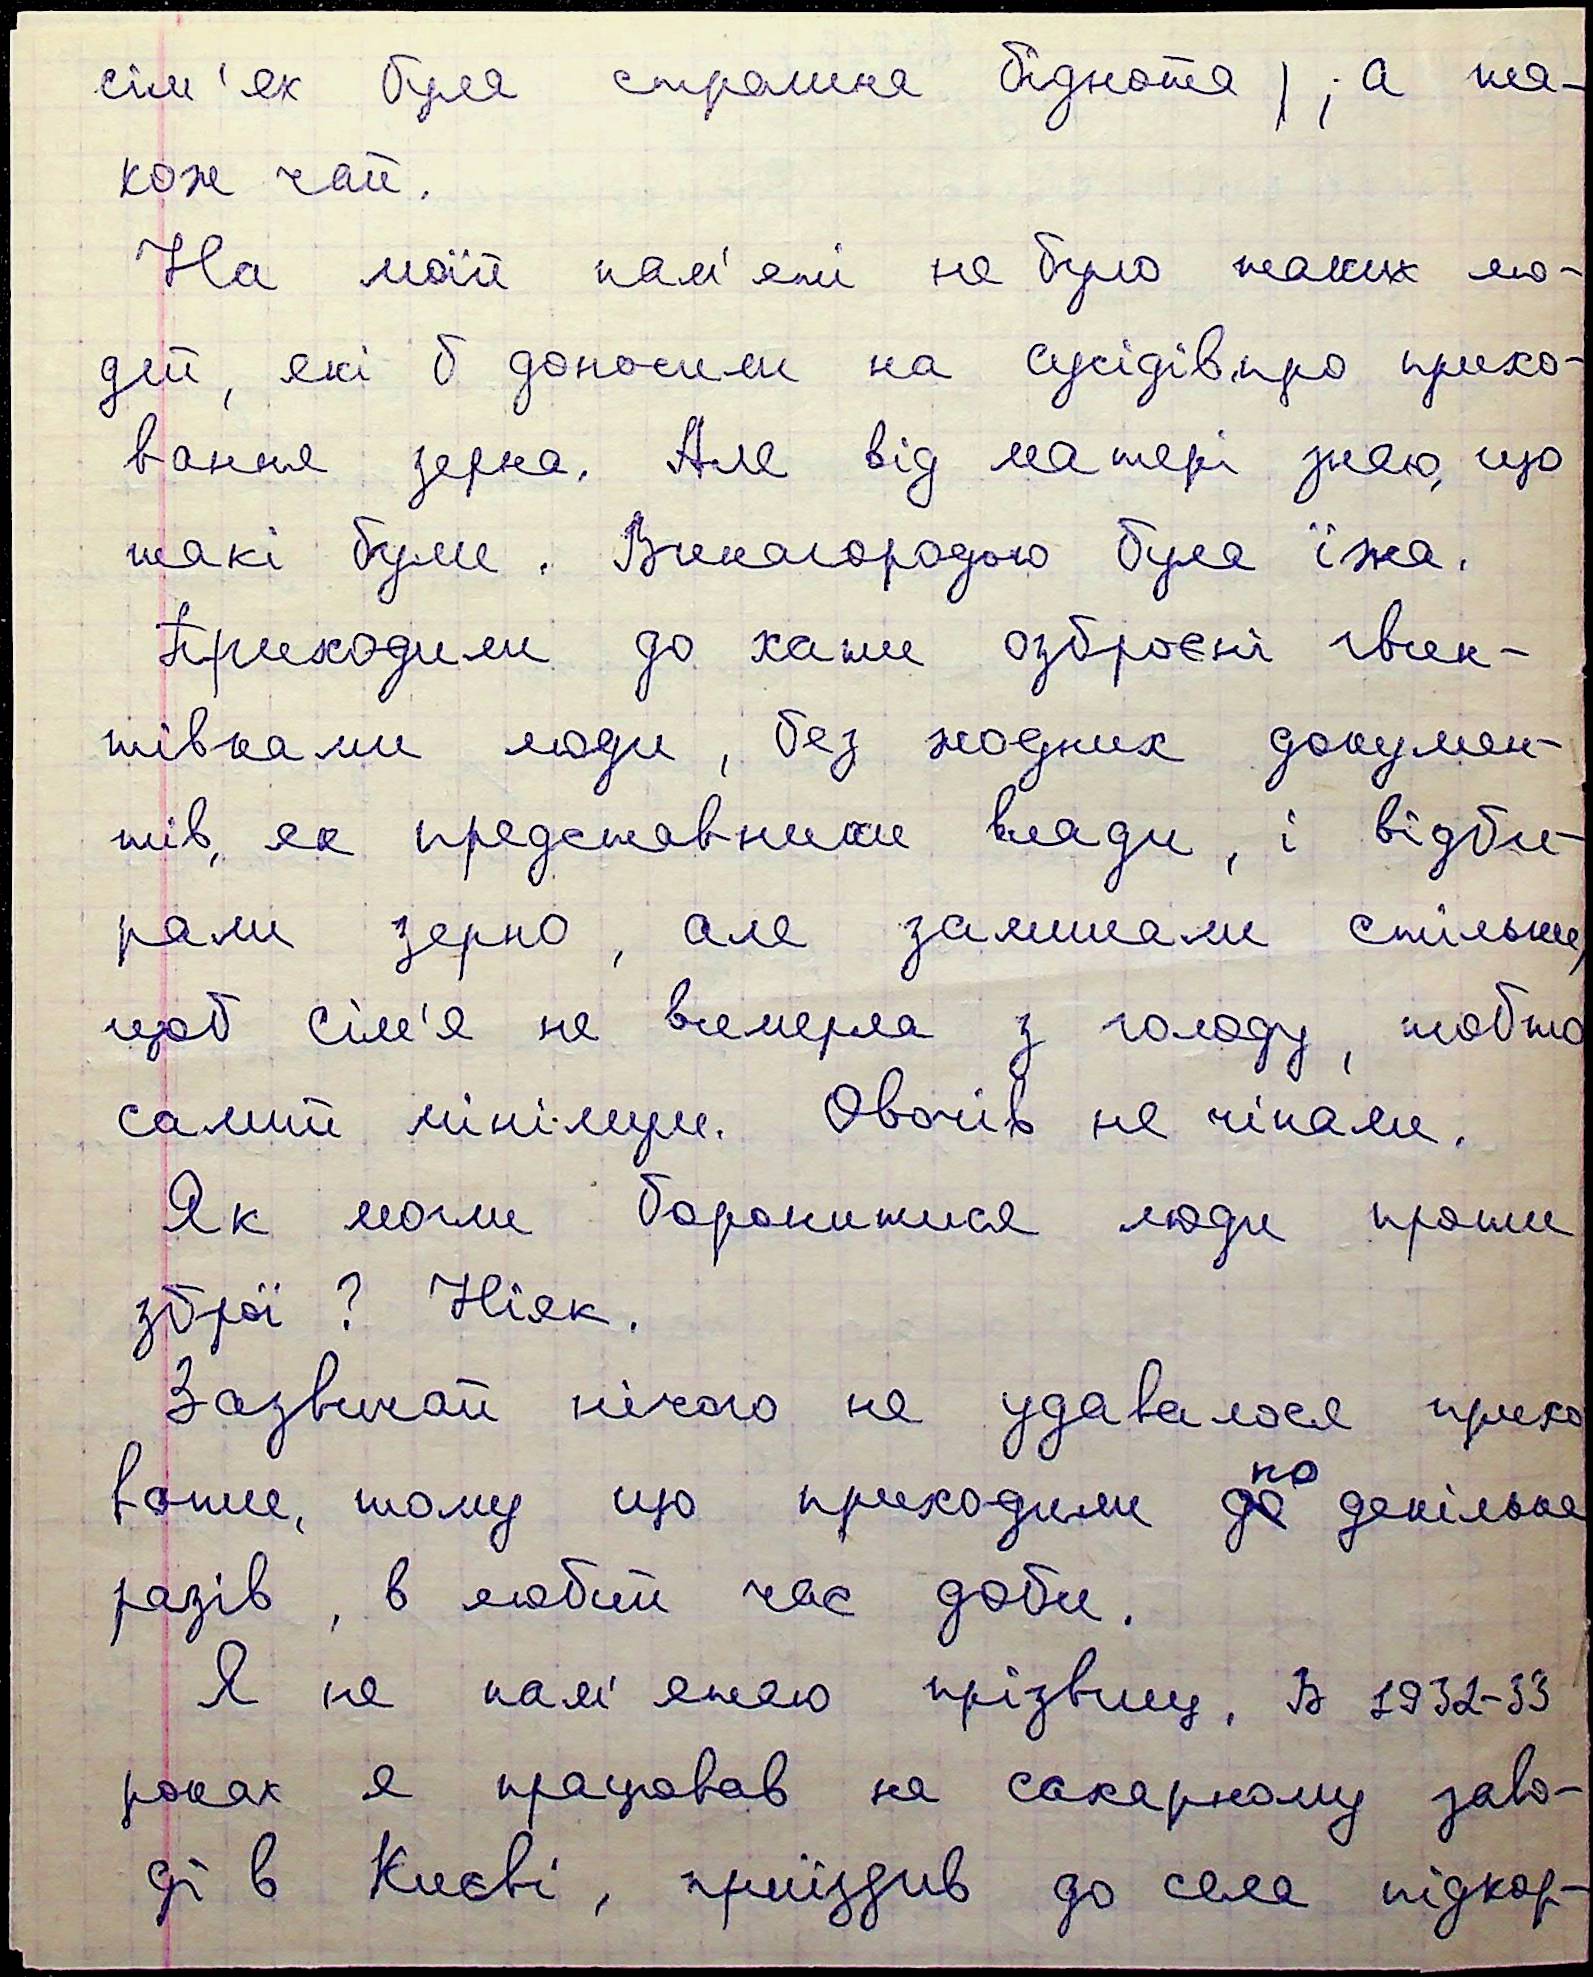 сім'ях була страшна біднота); а та-
кож чай.
На моїй пам'яті не було таких лю-
дей, які б доносили на сусідів, про прихо-
вання зерна. Але від матері знаю, що
такі були. Винагородою була їжа.
Приходили до хати озброєні гвин-
тівками люди, без жодних докумен-
тів, як представники влади, і відби-
рали зерно, але залишали стільки,
щоб сім'я не вимерла з голоду, тобто
самий мінімум. Овочів не чіпали.
Як могли боронитися люди проти
зброї? Ніяк.
Зазвичай нічого не удавалося прихо
вати, тому що приходили по декілька
разів, в любий час доби.
Я не пам'ятаю прізвищ. В 1932-33
роках я працював на сахарному заво-
ді в Києві, приїздив до села підкор-